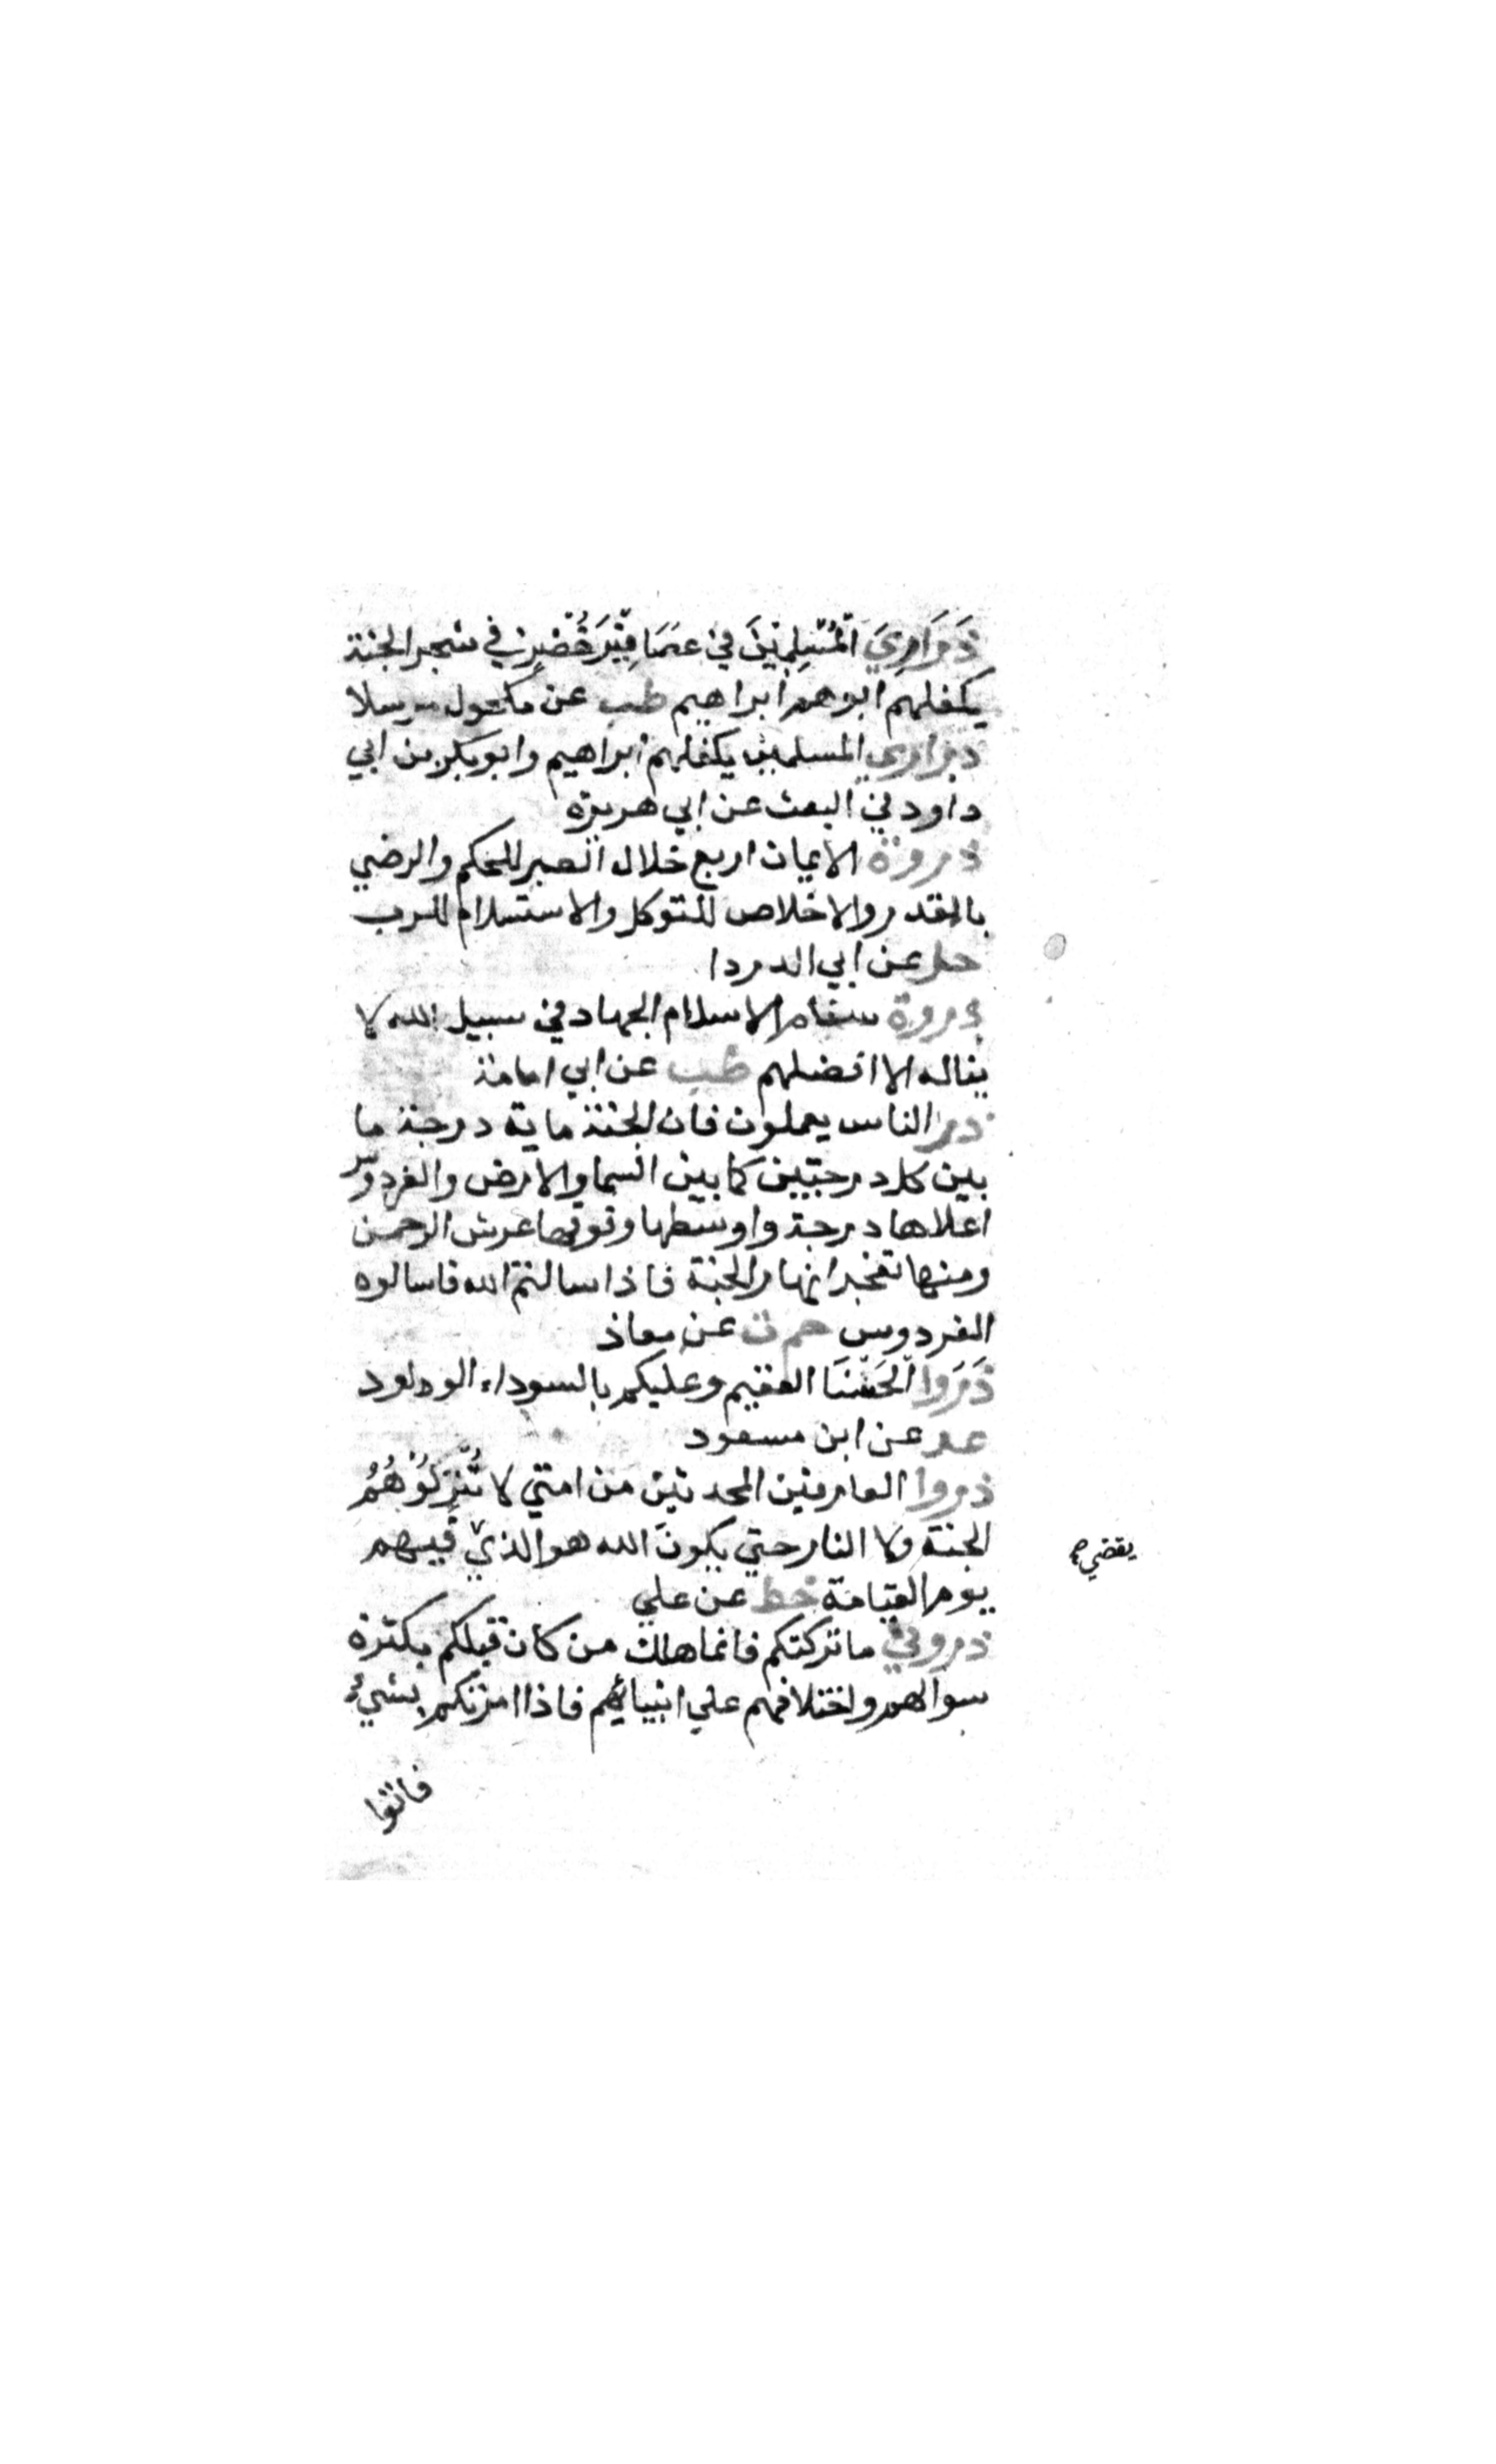 ذَرَارِيَ الْمُسْلِمِيْنَ في عَصَافِيْرَ خُضْرٍ في شجر الجنة
يكفلهم ابوهم ابراهيم طب عن مكحول مرسلا
ذراري المسلمين يكفلهم ابراهيم وابوبكر بن ابي
داود في البعث عن ابي هريرة
ذروة الايمان اربع خلال الصبر للحكم والرضي
بالقدر والاخلاص للتوكل والاستسلام للرب
حل عن ابي الدردا
ذروة سنام الاسلام الجهاد في سبيل الله لا
يناله الا افضلهم طب عن ابي امامة
ذر الناس يعملون فان الجنة ماية درجة ما
بين كل درجتين كما بين السما والارض والفردوس
اعلاها درجة واوسطها وفوقها عرش الرحمن
ومنها تفجر انهار الجنة فاذا سالتم الله فاسالوه
الفردوس حم ت عن معاذ
ذَرُوا الْحَسْنَا العقيم وعليكم بالسوداء الولود
عد عن ابن مسعود
ذروا العارفين المحدثين من امتي لا تُنْزِلُوْهُمُ
الجنة ولا النار حتي يكونَ الله هو الذي فيهم
يقضي صح
يوم القيامة خط عن علي
ذروني ما تركتكم فانما هلك من كان قبلكم بكثرة
سوالهم واختلافهم علي انبيائهم فاذا امرتكم بشيءٍ
فاتوا